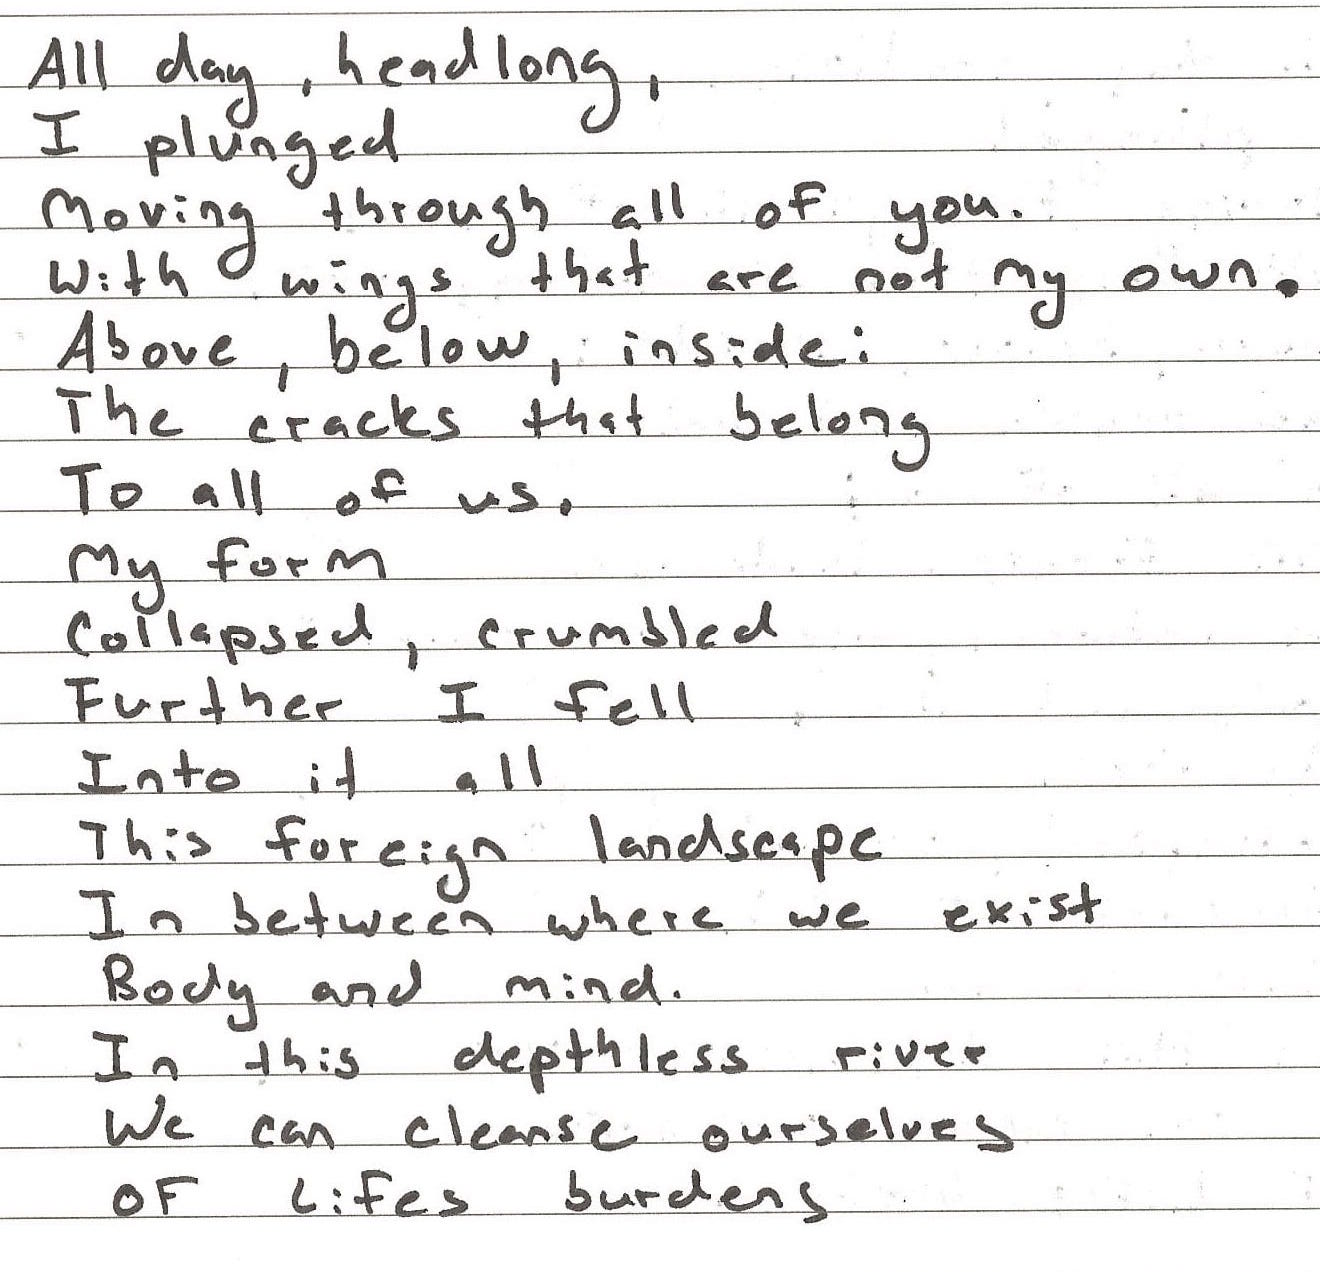 All day, headlong,
I plunged
Moving through all of you.
With wings that are not my own.
Above, below, inside:
The cracks that belong
To all of us.
My form
Collapsed, crumbled
Further I fell
Into it all
This foreign landscape
In between where we exist
Body and mind.
In this depthless river
We can cleanse ourselves
OF Lifes burdens